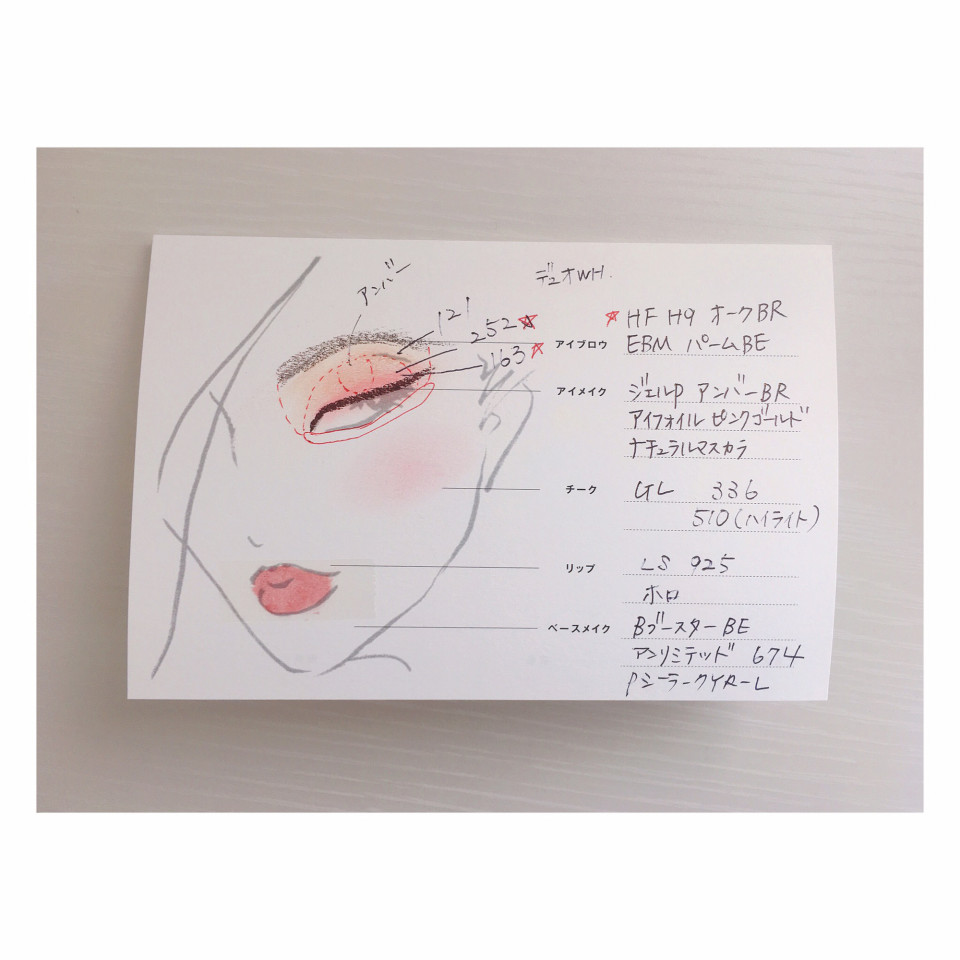 アンバー
デュオWH.
121
252☆
163☆
☆HF H9 オークBR
アイブロウ EBM パームBE
アイメイク ジェルP アンバーBR
アイフォイル ピンクゴールド
ナチュラルマスカラ
チーク GL 336
510(ハイライト)
リップ LS 925
ホロ
ベースメイク BブースターBE
アンリミテッド 674
Pシーラー